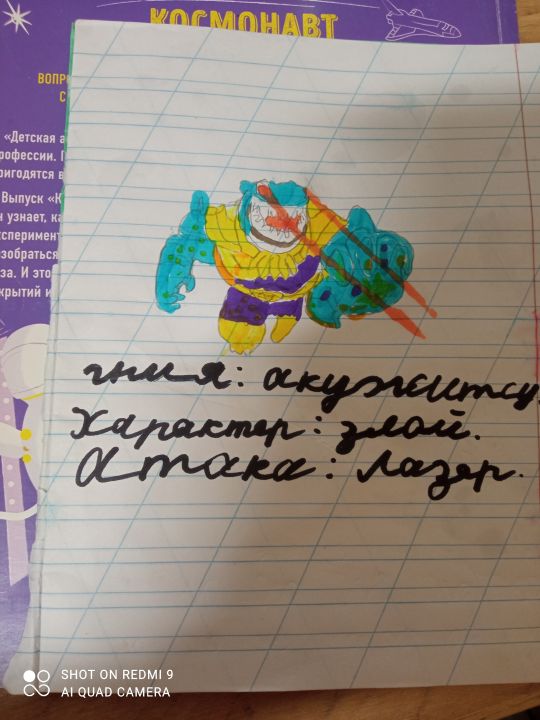 КОСМОНАВТ
ВОПР
С
«Детская а
рофессии. П
ригодятся в
Выпуск «К
н узнает, ка
ксперимент
азобраться
за. И это
крытий и
гния: акужитсу.
Характер: злой.
Атака: Лазер.
SHOT ON REDMI 9
AI QUAD CAMERA